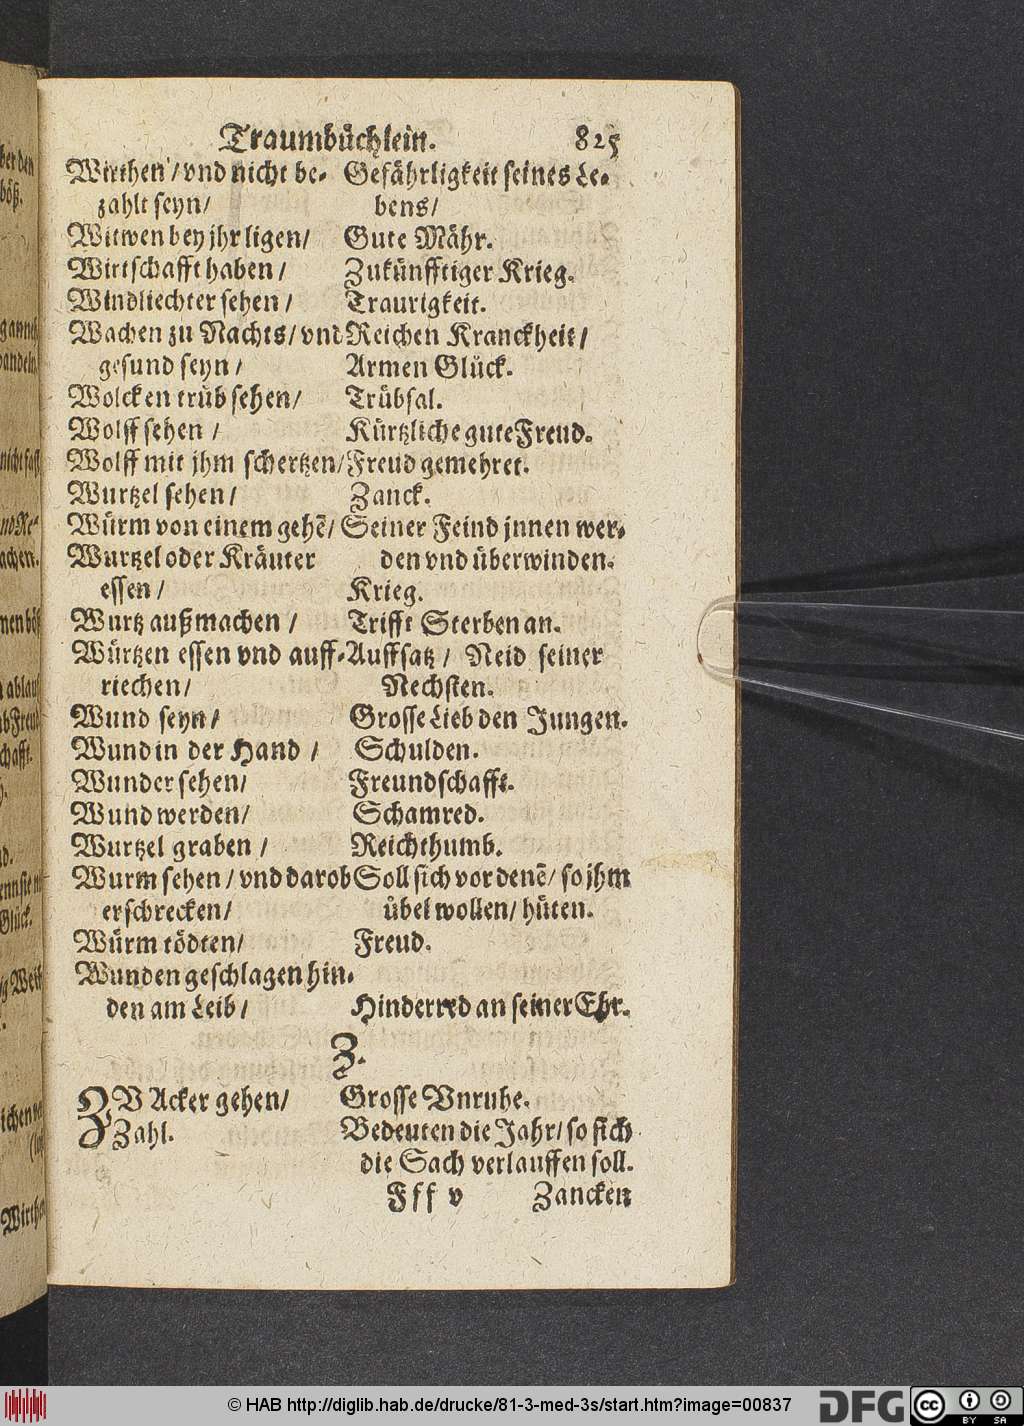 Traumbüchlein. 825
Wirthen / vnd nicht be- Gefährligkeit seines Le-
zahlt seyn/ bens/
Witwen bey jhr ligen/ Gute Mähr.
Wirtschafft haben / Zukünfftiger Krieg.
Windliechter sehen / Traurigkeit.
Wachen zu Nachts/ vnd Reichen Kranckheit /
gesund seyn / Armen Glück.
Wolcken trüb sehen/ Trübsal.
Wolff sehen / Kürtzliche gute Freud.
Wolff mit jhm schertzen/ Freud gemehret.
Wurtzel sehen / Zanck.
Würm von einem gehẽ/ Seiner Feind jnnen wer-
Wurtzel oder Kräuter den vnd überwinden.
essen / Krieg.
Wurtz außmachen / Trifft Sterben an.
Würtzen essen vnd auff- Auffsatz / Neid seiner
riechen/ Nechsten.
Wund seyn/ Grosse Lieb den Jungen.
Wund in der Hand / Schulden.
Wunder sehen/ Freundschafft.
Wund werden/ Schamred.
Wurtzel graben / Reichthumb.
Wurm sehen / vnd darob Soll sich vor denẽ/ so jhm
erschrecken/ übel wollen/ hüten.
Würm tödten/ Freud.
Wunden geschlagen hin-
den am Leib / Hinderred an seiner Ehr.
Z.
ZV Acker gehen/ Grosse Vnruhe.
Zahl. Bedeuten die Jahr/ so sich
die Sach verlauffen soll.
Fff v Zancken
© HAB http://diglib.hab.de/drucke/81-3-med-3s/start.htm?image=00837 DFG cc BY SA